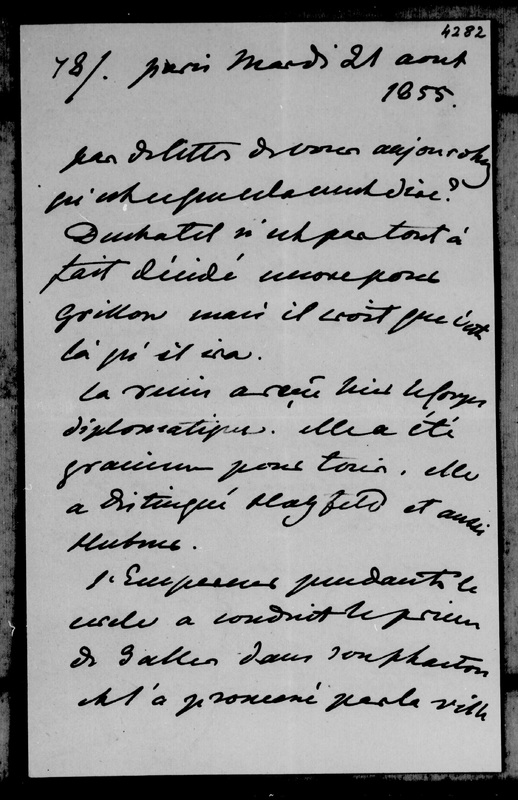 4282
78/. paris Mardi 21 aout
1855.
pas de lettre de vous aujourd'hui
qu'est ce que cela veut dire?
Duchatel n'est pas tout à
fait décidé encore pour
Grillon mais il croit que c'est
là qu'il ira.
la reine a reçu hier le Corps
diplomatique. Elle a été
gracieuse pour tous. elle
a distingué Hatzfeld et aussi
Hubner.
l'Empereur pendant le
cercle a conduit le prince
de Galles dans son phaeton
et l'a promené par la ville